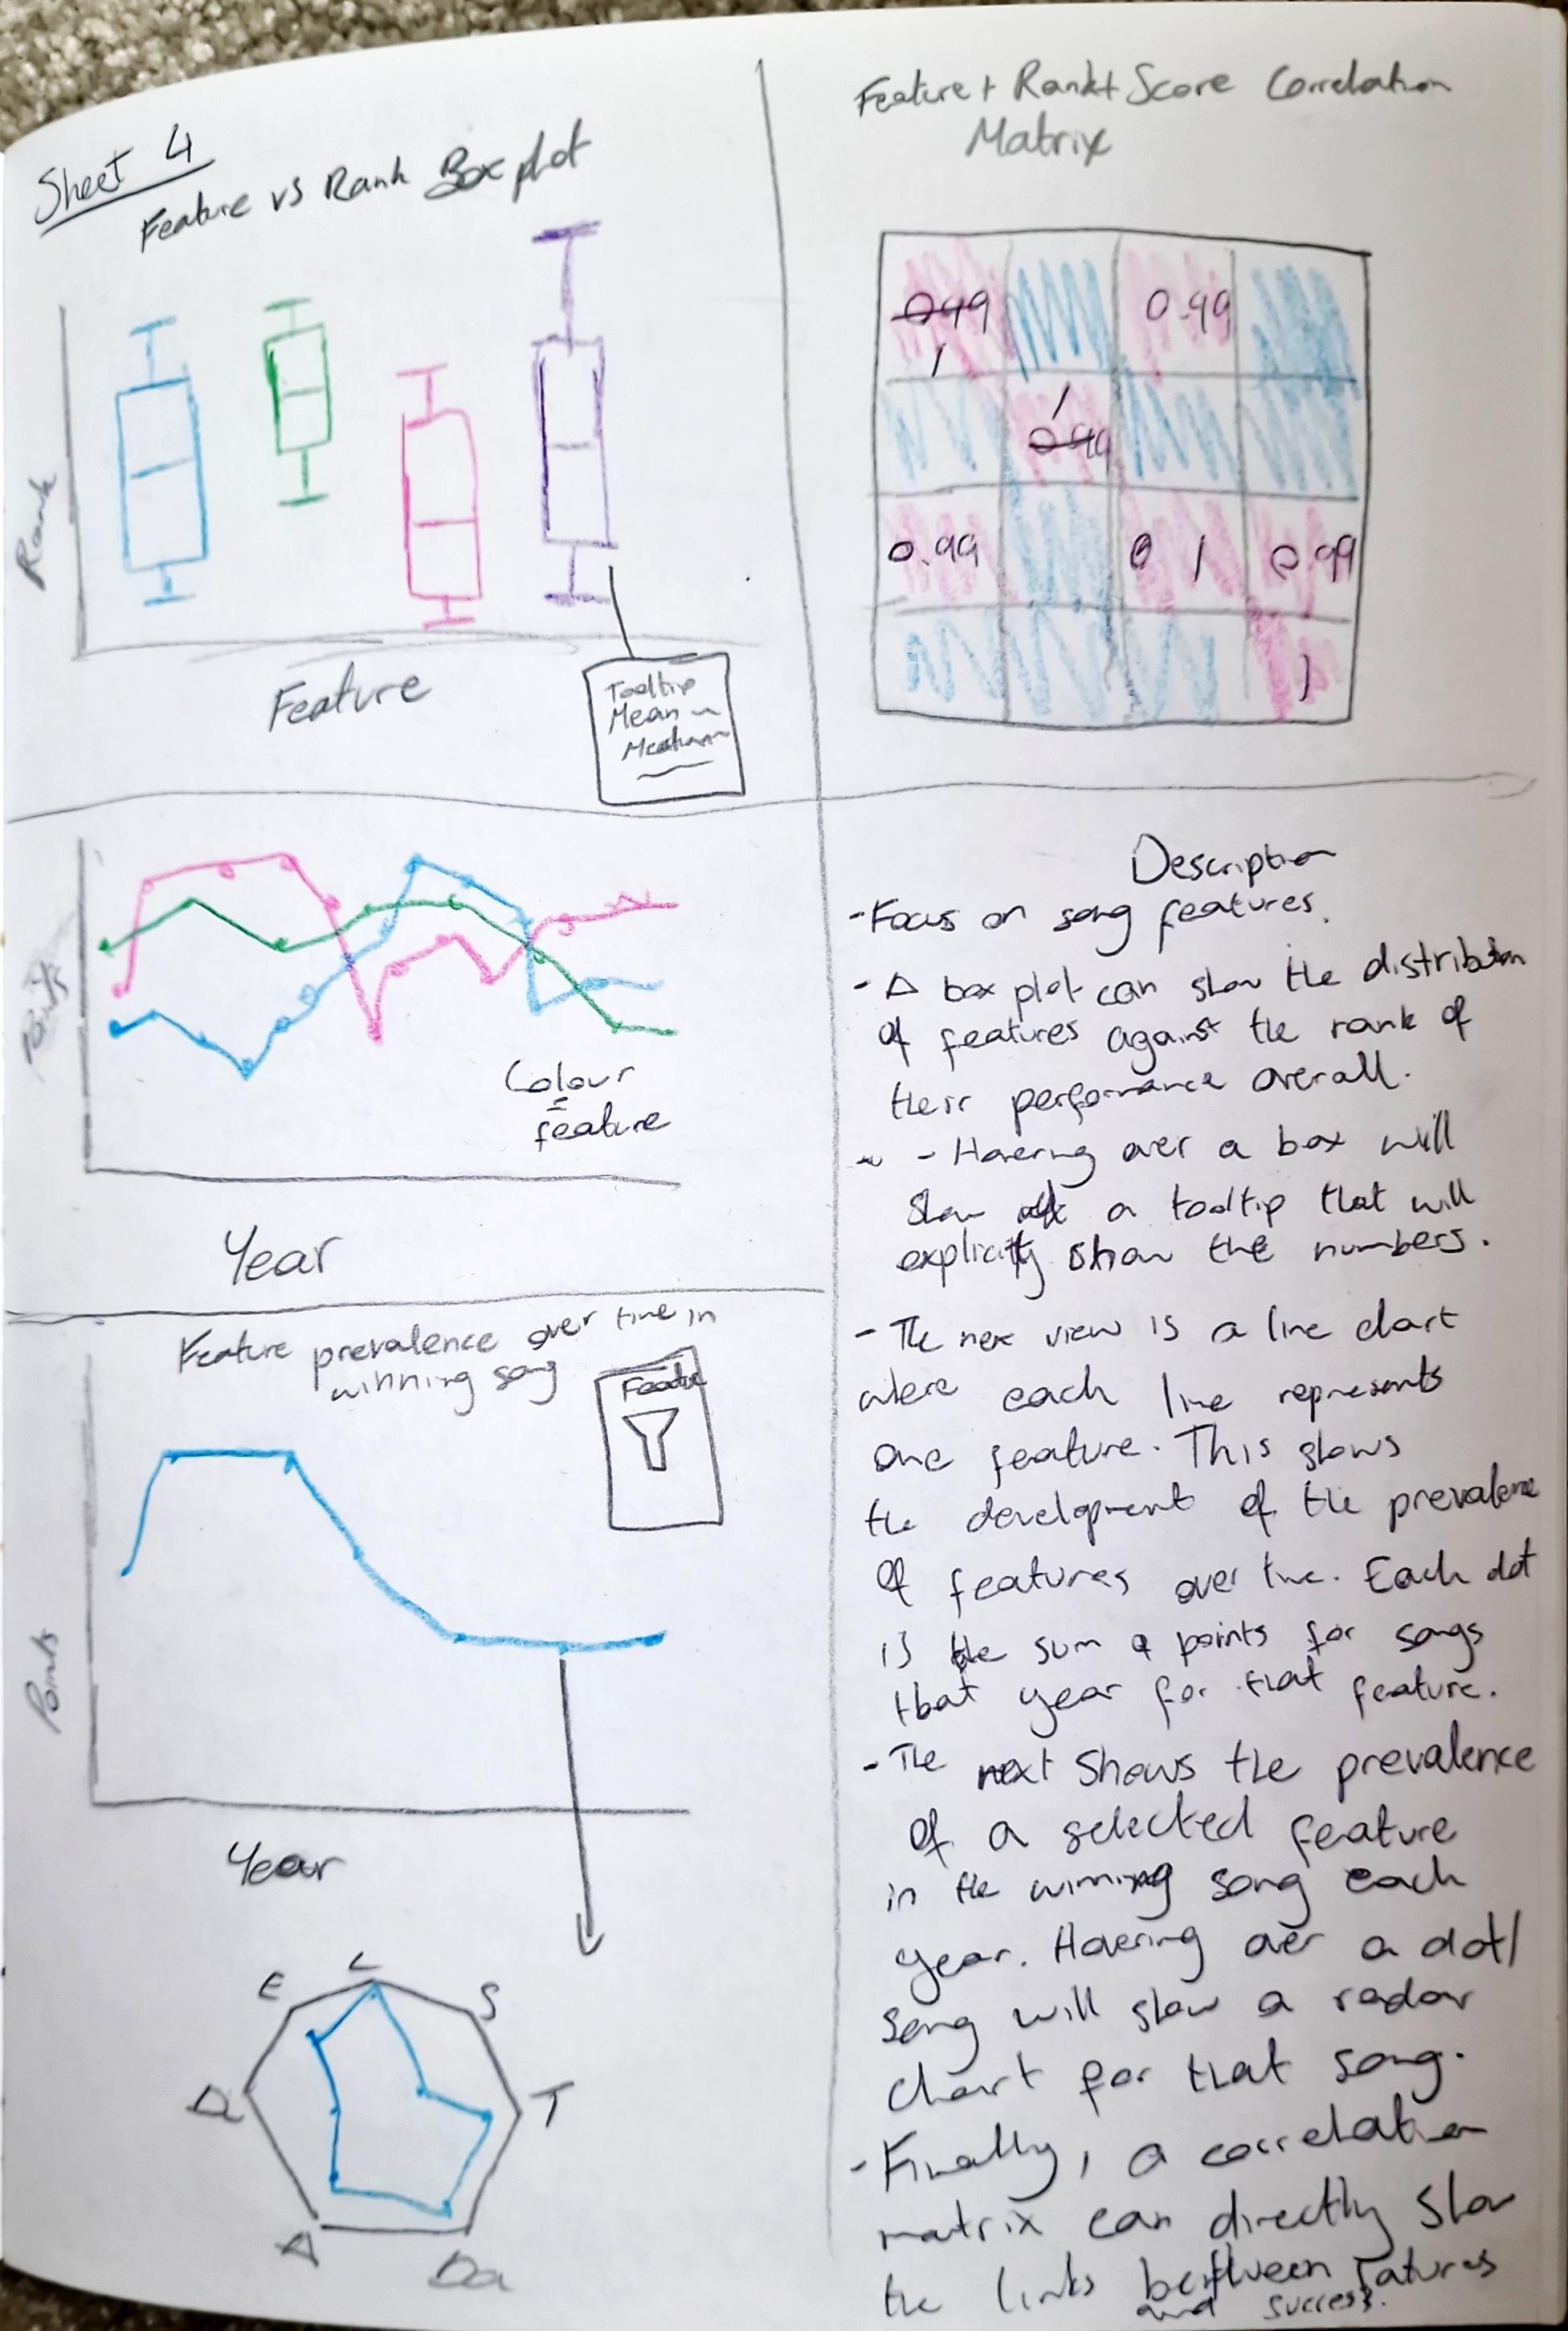 Sheet 4
Feature vs Rank Box plot
Rank
Feature
Tooltip
Mean
Median
Feature + Rank + Score Correlation
Matrix
0.99
1
0.99
1
0.99
0.99
0 1
0.99
1
Points
Colour
=
feature
Year
Feature prevalence over time in
winning song
Feature
Points
Year
L
E
S
T
A
Da
Description
- Focus on song features.
- A box plot can show the distribution
of features against the rank of
their performance overall.
- Hovering over a box will
show a tooltip that will
explicitly show the numbers.
- The next view is a line chart
where each line represents
one feature. This shows
the development of the prevalence
of features over time. Each dot
is the sum of points for songs
that year for that feature.
- The next shows the prevalence
of a selected feature
in the winning song each
year. Hovering over a dot/
song will show a radar
chart for that song.
- Finally, a correlation
matrix can directly show
the links between features
and success.